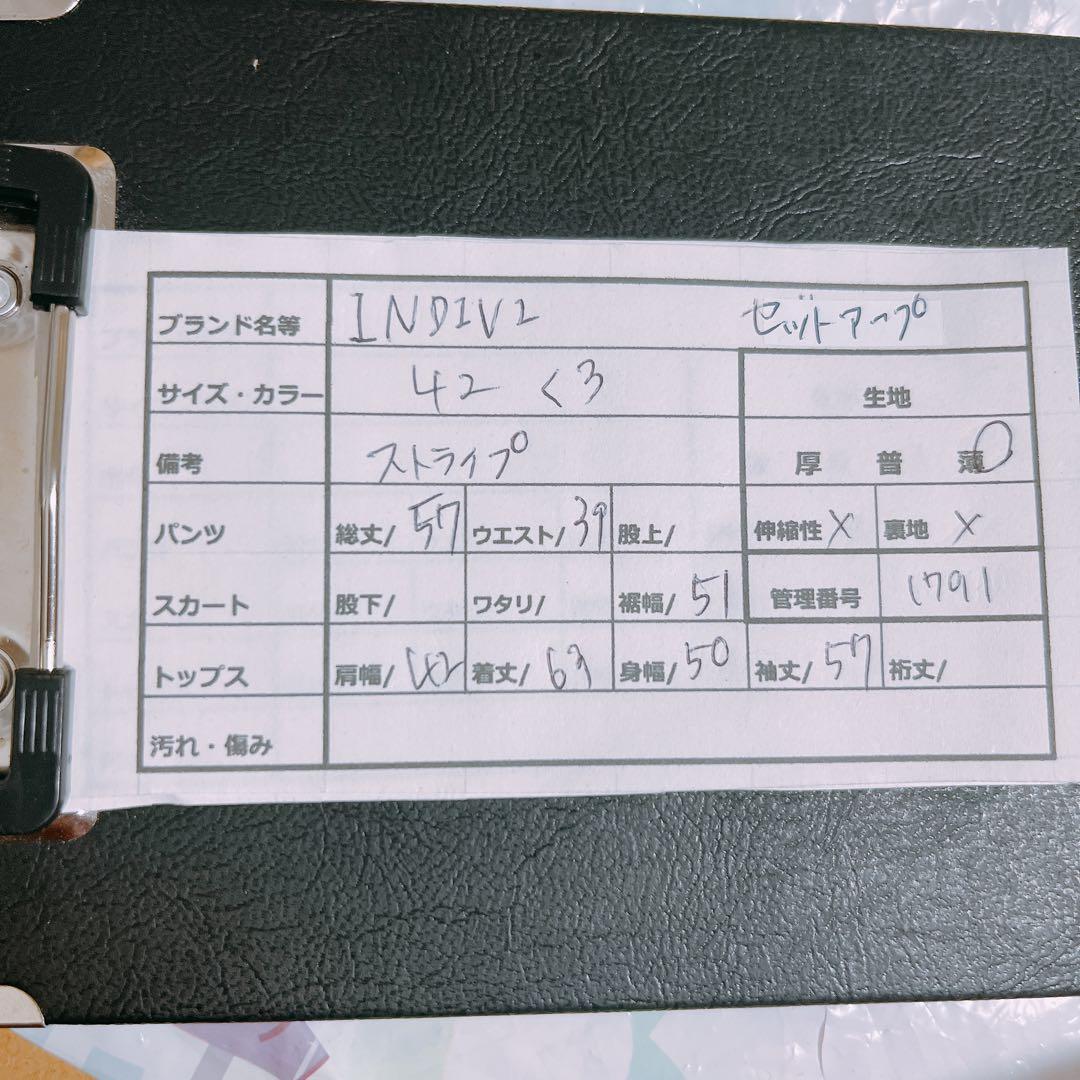 ブランド名等 INDIVI セットアップ
サイズ・カラー 42 くろ 生地
備考 ストライプ 厚 普 薄
パンツ 総丈/ 57 ウエスト/ 39 股上/ 伸縮性 X 裏地 X
スカート 股下/ ワタリ/ 裾幅/ 51 管理番号 1791
トップス 肩幅/ 42 着丈/ 63 身幅/ 50 袖丈/ 57 裄丈/
汚れ・傷み